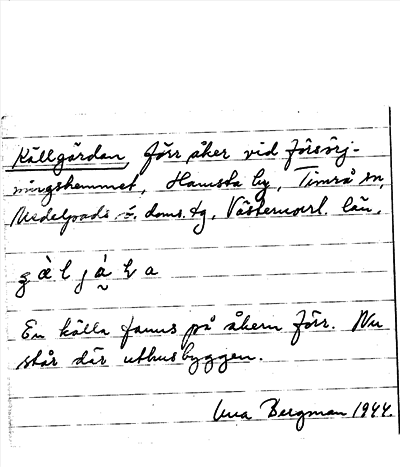 Källgärdan, förr åker vid försörj-
ningshemmet, Hamsta by, Timrå sn,
Medelpads ö. doms. tg, Västernorrl. län,
En källa fanns på åkern förr. Nu
står där uthusbyggen.
Una Bergman 1944.